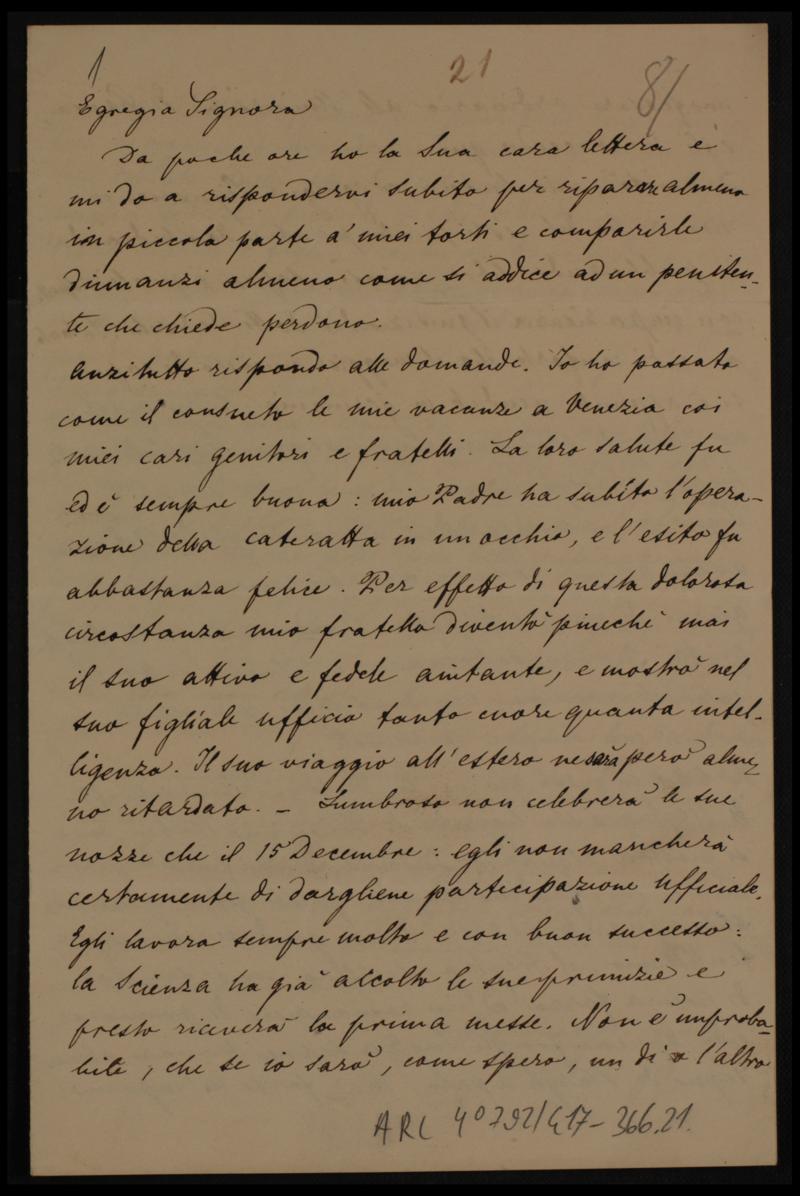 1
21
8/
Egregia Signora
Da poche ore ho la Sua cara lettera e
mi do a rispondervi subito per riparare almeno
in piccola parte a' miei torti e comparirle
dinnanzi almeno come si addice ad un peniten-
te che chiede perdono.
Anzitutto rispondo alle domande. Io ho passato
come il consueto le mie vacanze a Venezia coi
miei cari genitori e fratelli. La loro salute fu
ed è sempre buona: mio Padre ha subíto l'opera-
zione della cateratta in un occhio, e l'esito fu
abbastanza felice. Per effetto di questa dolorosa
circostanza mio fratello diventò piucchè mai
il suo attivo e fedele aiutante, e mostrò nel
suo figliale ufficio tanto cuore quanta intel-
ligenza. Il suo viaggio all'estero ne sarà però alme-
no ritardato. - Lumbroso non celebrerà le sue
nozze che il 15 Decembre: egli non mancherà
certamente di dargliene partecipazione ufficiale.
Egli lavora sempre molto e con buon successo:
la Scienza ha già accolto le sue primizie e
presto riceverà la prima messe. Non è improba-
bile, che se io sarò, come spero, un dì o l'altro
ARC 4° 792/G17-366.21.